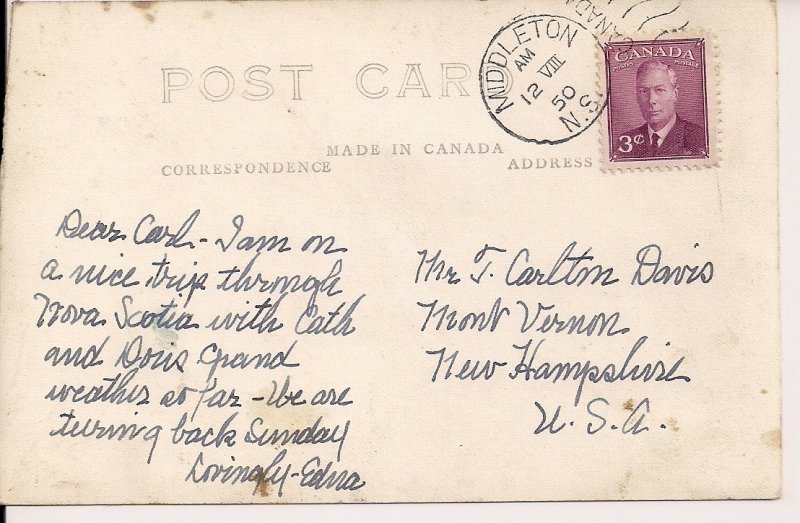 POST CARD
MIDDLETON
AM
12 VIII
50
N.S.
CANADA
CANADA
POSTES POSTAGE
3¢
MADE IN CANADA
CORRESPONDENCE
ADDRESS
Dear Carl - I am on
a nice trip through
Nova Scotia with Cath
and Doris Grand
weather so far - We are
turing back Sunday
Lovingly - Edna
Mr T. Carlton Davis
Mont Vernon
New Hampshire
U.S.A.